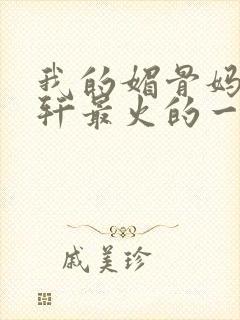 我的媚骨妈
轩最火的一
戚美珍